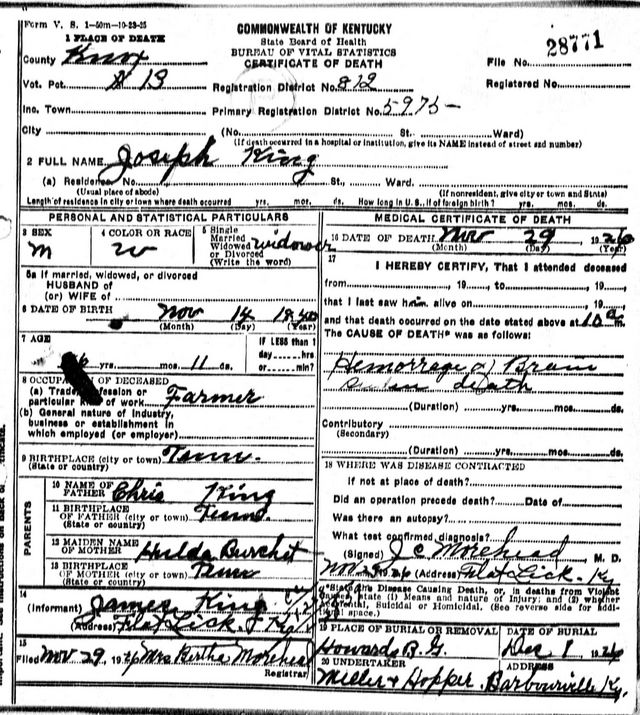 Form V. S. 1-50m-10-23-25
COMMONWEALTH OF KENTUCKY
State Board of Health
BUREAU OF VITAL STATISTICS
CERTIFICATE OF DEATH
28771
File No.
1 PLACE OF DEATH
County Knox
Vot. Pct. 13
Registration District No. 812
Registered No.
Inc. Town
Primary Registration District No. 5975-
City (No. St. Ward)
(If death occurred in a hospital or institution, give its NAME instead of street and number)
2 FULL NAME Joseph King
(a) Residence No. St., Ward.
(Usual place of abode) (If nonresident, give city or town and State)
Length of residence in city or town where death occurred yrs. mos. ds. How long in U. S., if of foreign birth? yrs. mos. ds.
PERSONAL AND STATISTICAL PARTICULARS
3 SEX
M
4 COLOR OR RACE
W
5 Single
Married
Widowed
or Divorced
(Write the word)
widower
5a If married, widowed, or divorced
HUSBAND of
(or) WIFE of
6 DATE OF BIRTH Nov 14
(Month) (Day) (Year)
7 AGE
yrs. mos. 11 ds.
IF LESS than 1
day hrs
or min?
8 OCCUPA OF DECEASED
(a) Trade, ession or
particular of work Farmer
(b) General nature of industry,
business or establishment in
which employed (or employer)
9 BIRTHPLACE (city or town) Tenn.
(State or country)
PARENTS
10 NAME OF
FATHER Chris King
11 BIRTHPLACE
OF FATHER (city or town) Tenn
(State or country)
12 MAIDEN NAME
OF MOTHER Hulda Burchet
13 BIRTHPLACE
OF MOTHER (city or town) Tenn
(State or country)
14
(Informant) James King
(Address) Flat Lick Ky
15
Filed Nov 29, 1926 Mrs Bertha Morehead
Registrar
MEDICAL CERTIFICATE OF DEATH
16 DATE OF DEATH Nov 29 1926
(Month) (Day) (Year)
17
I HEREBY CERTIFY, That I attended deceased
from 19 , to 19
that I last saw him alive on 19
and that death occurred on the date stated above at 10 a m.
The CAUSE OF DEATH* was as follows:
Hemorrage of Brain
death
(Duration) yrs. mos. ds.
Contributory
(Secondary)
(Duration) yrs. mos. ds.
18 WHERE WAS DISEASE CONTRACTED
if not at place of death?
Did an operation precede death? Date of
Was there an autopsy?
What test confirmed diagnosis?
(Signed) J C Morehead M. D.
Nov 29 1926 (Address) Flat Lick. Ky
*State the Disease Causing Death, or, in deaths from Violent
state (1) Means and nature of Injury; and (2) whether
Suicidal or Homicidal. (See reverse side for addi-
space.)
19 PLACE OF BURIAL OR REMOVAL
Howards B. G.
DATE OF BURIAL
Dec 1 1926
20 UNDERTAKER
Miller & Hopper.
ADDRESS
Barbourville Ky.